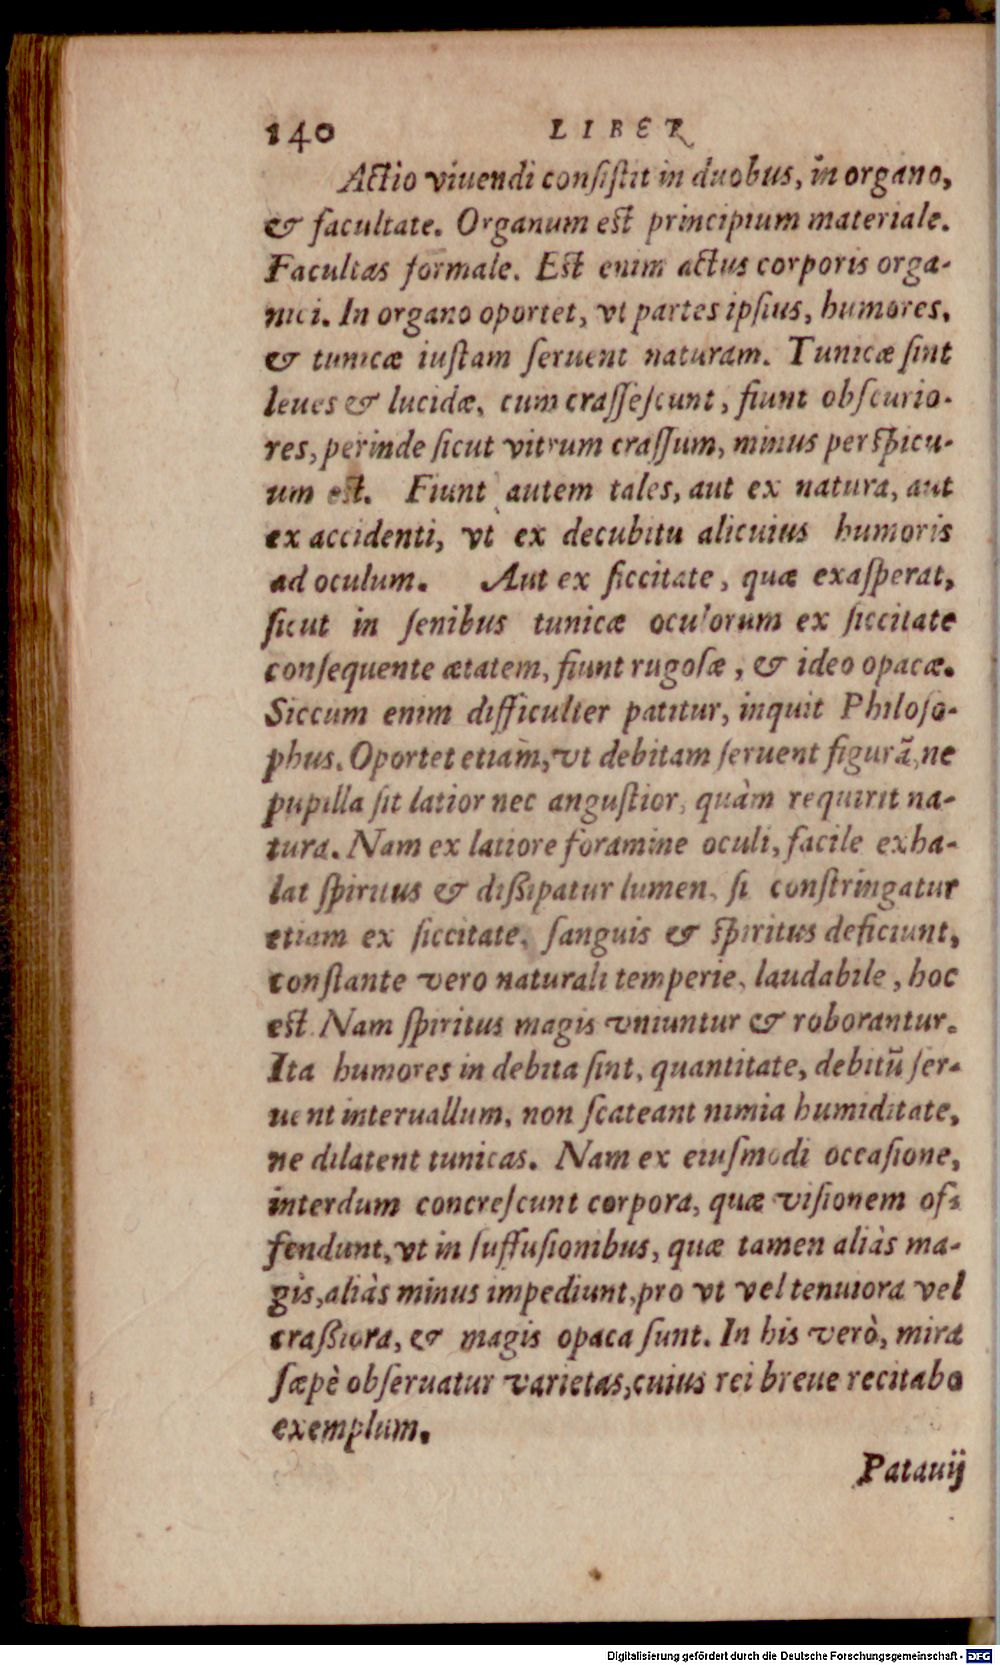 140 LIBER
Actio viuendi consistit in duobus, in organo,
& facultate. Organum est principium materiale.
Facultas formale. Est enim actus corporis orga-
nici. In organo oportet, vt partes ipsius, humores,
& tunicæ iustam seruent naturam. Tunicæ sint
leues & lucidæ, cum crassescunt, fiunt obscurio-
res, perinde sicut vitrum crassum, minus perspicu-
um est. Fiunt autem tales, aut ex natura, aut
ex accidenti, vt ex decubitu alicuius humoris
ad oculum. Aut ex siccitate, quæ exasperat,
sicut in senibus tunicæ oculorum ex siccitate
consequente ætatem, fiunt rugosæ, & ideo opacæ.
Siccum enim difficulter patitur, inquit Philoso-
phus. Oportet etiam, vt debitam seruent figurã, ne
pupilla sit latior nec angustior, quàm requirit na-
tura. Nam ex latiore foramine oculi, facile exha-
lat spiritus & dißipatur lumen, si constringatur
etiam ex siccitate, sanguis & spiritus deficiunt,
constante vero naturali temperie, laudabile, hoc
est. Nam spiritus magis vniuntur & roborantur.
Ita humores in debita sint, quantitate, debitũ ser-
uent interuallum, non scateant nimia humiditate,
ne dilatent tunicas. Nam ex eiusmodi occasione,
interdum concrescunt corpora, quæ visionem of-
fendunt, vt in suffusionibus, quæ tamen aliàs ma-
gis, aliàs minus impediunt, pro vt vel tenuiora vel
craßiora, & magis opaca sunt. In his verò, mira
sæpè obseruatur varietas, cuius rei breue recitabo
exemplum.
Patauij
Digitalisierung gefördert durch die Deutsche Forschungsgemeinschaft - DFG